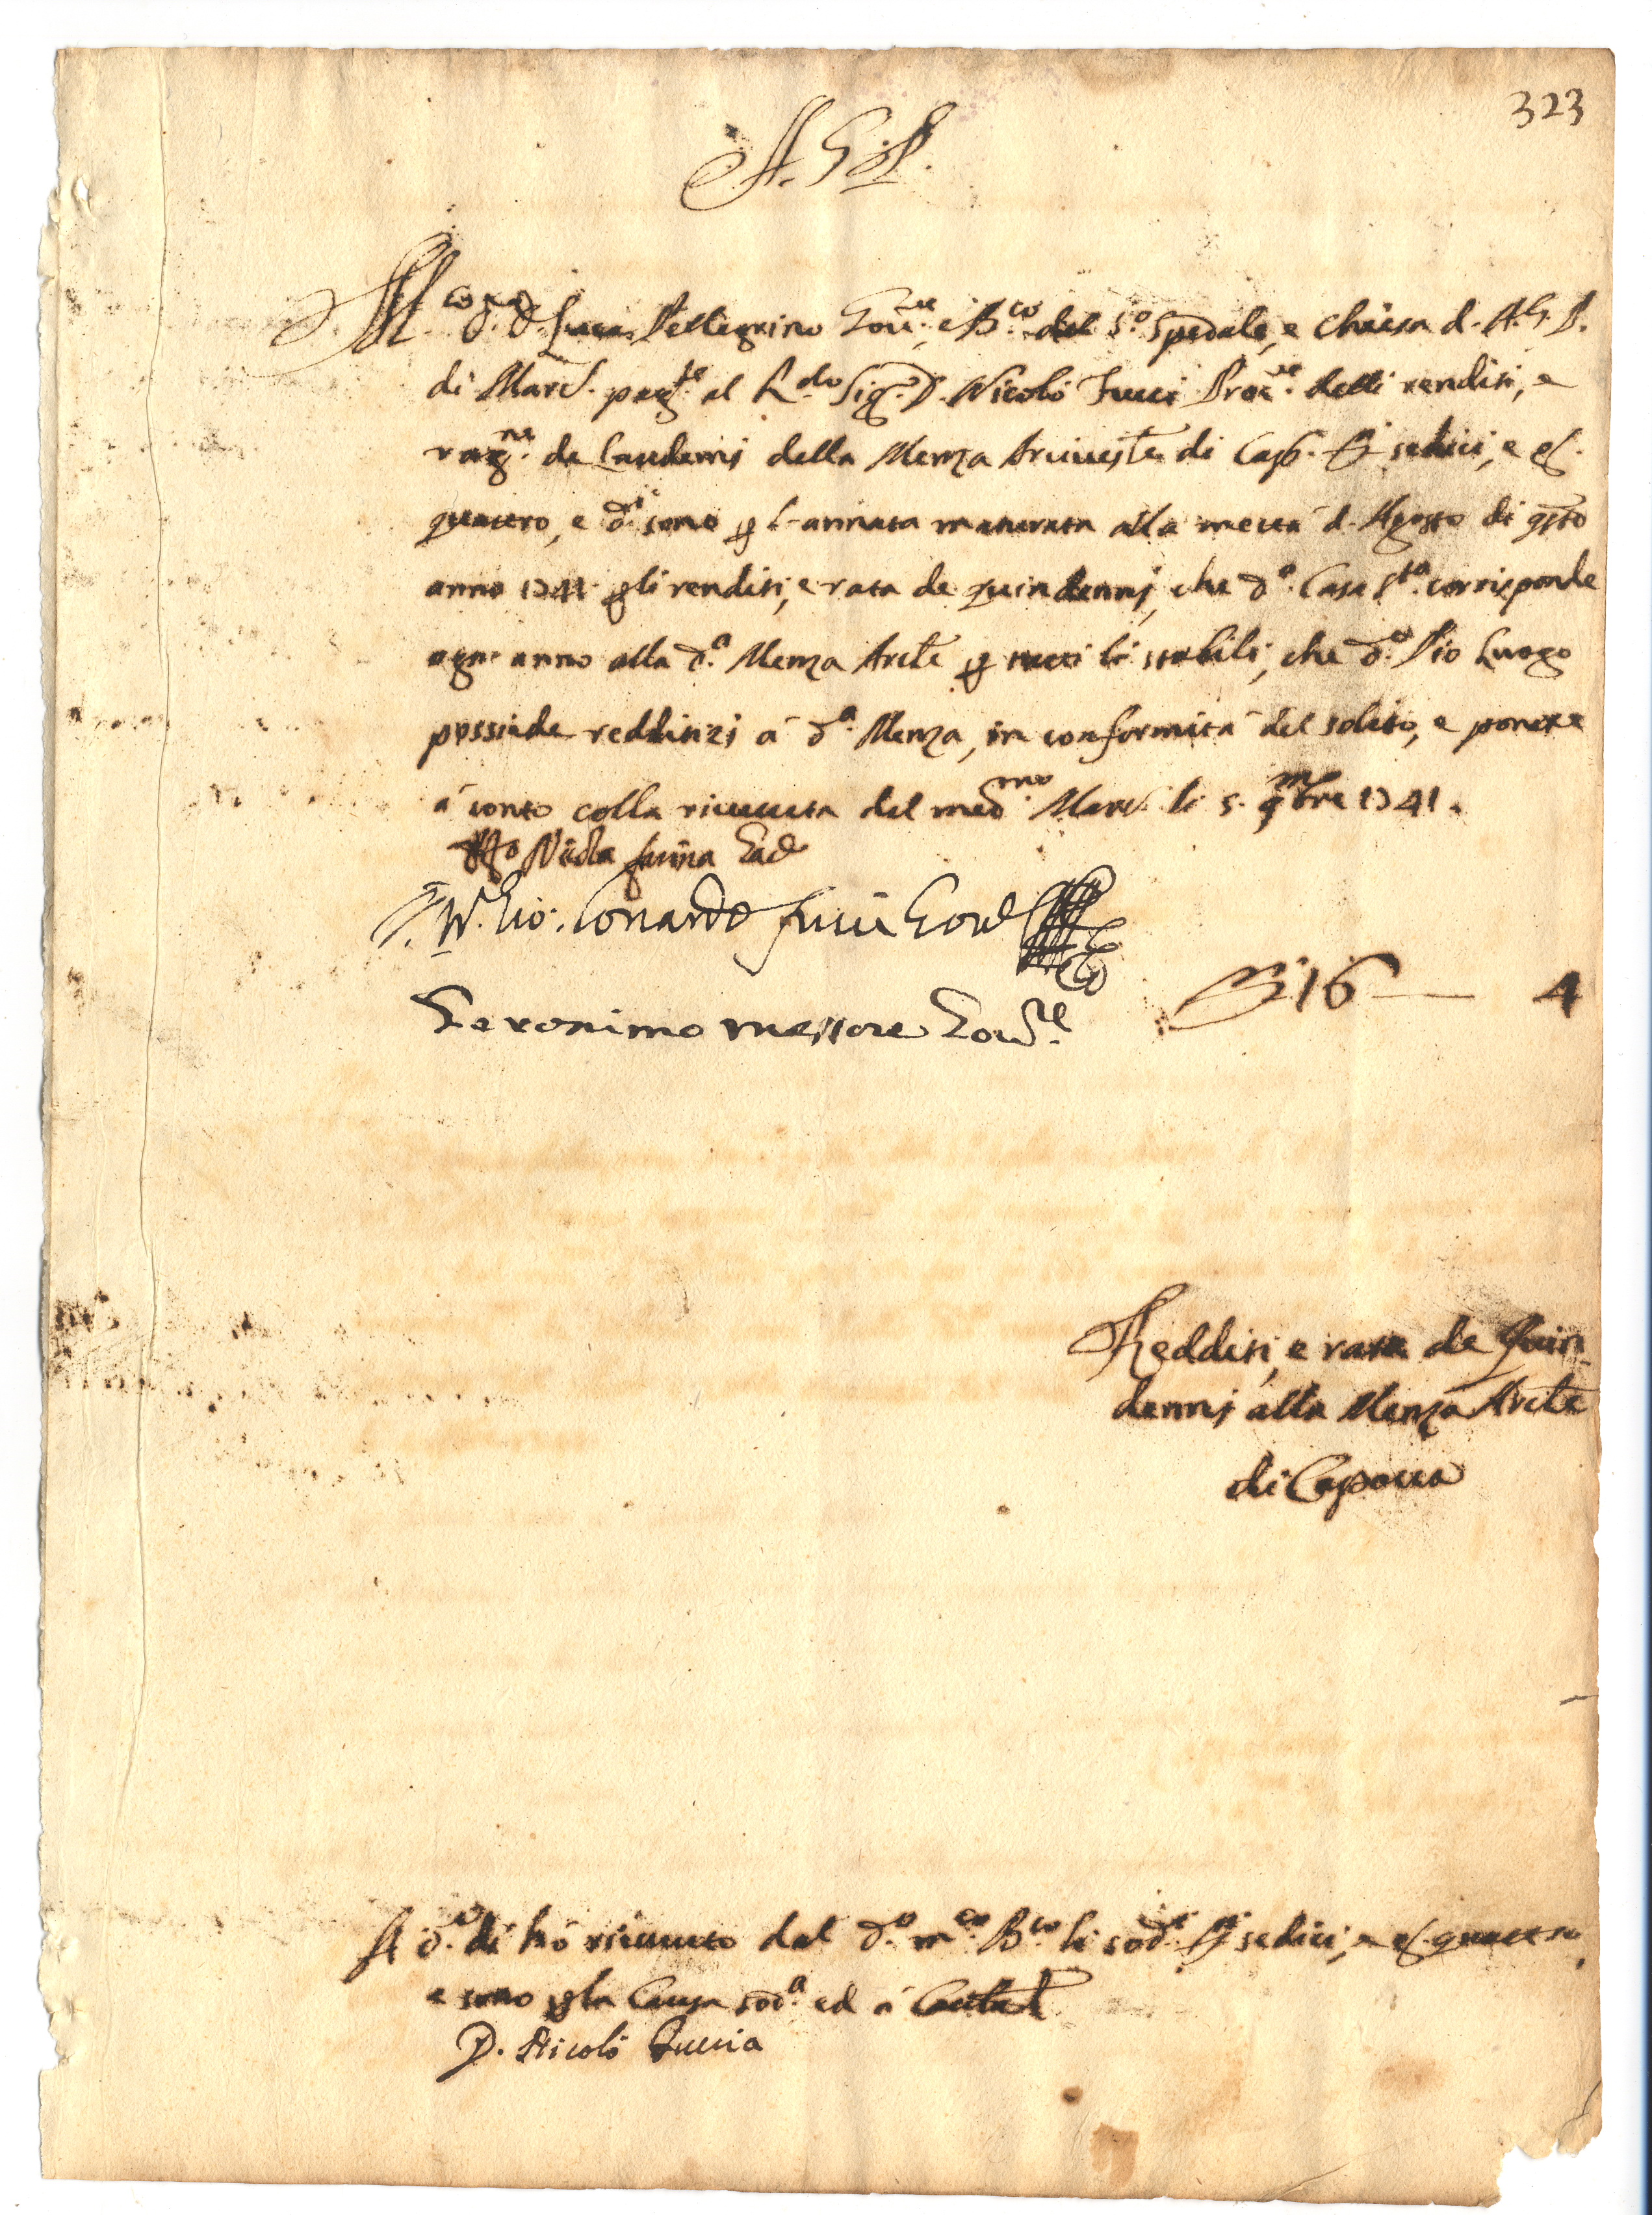 323
A. G. P.
M.co S.r D. Luca Pellegrino Gou.re, e B.co del S.o Spedale, e Chiesa d. A. G. P.
di Marc. pag.te al R.do Sig.r D. Nicolò Fucci Proc.re delli renditi, e
rag.ne de Laudemj della Menza Arciuesc.le di Cap. D.ti sedici, e g.
quattro, e d.i sono p l'annata maturata alla mettà d. Agosto di q̃sto
anno 1741. p li renditi, e rata de quindennj, che d.a Casa S.ta corrisponde
ogn'anno alla d.a Menza Arcle p tutti li stabili, che d.o Pio Luogo
possiede reddititij à d.a Menza, in conformità del solito, e ponete
à conto colla riceuuta del med.mo Marc. li 5. 9mbre 1741.
Nicola Gou.e
Gio: Lonardo Fucci Gou.e
Geronimo Messore Gou.re
D.ti 16 — 4
Redditi, e rata de Quin
dennj alla Menza Arcle
di Capoua
A d.o dì hò riceuuto dal d.o m.co B.co li sod.i D.ti sedici, e g. quattro,
e sono p la Causa sod.a ed à Cautela
D. Nicolò Fuccia